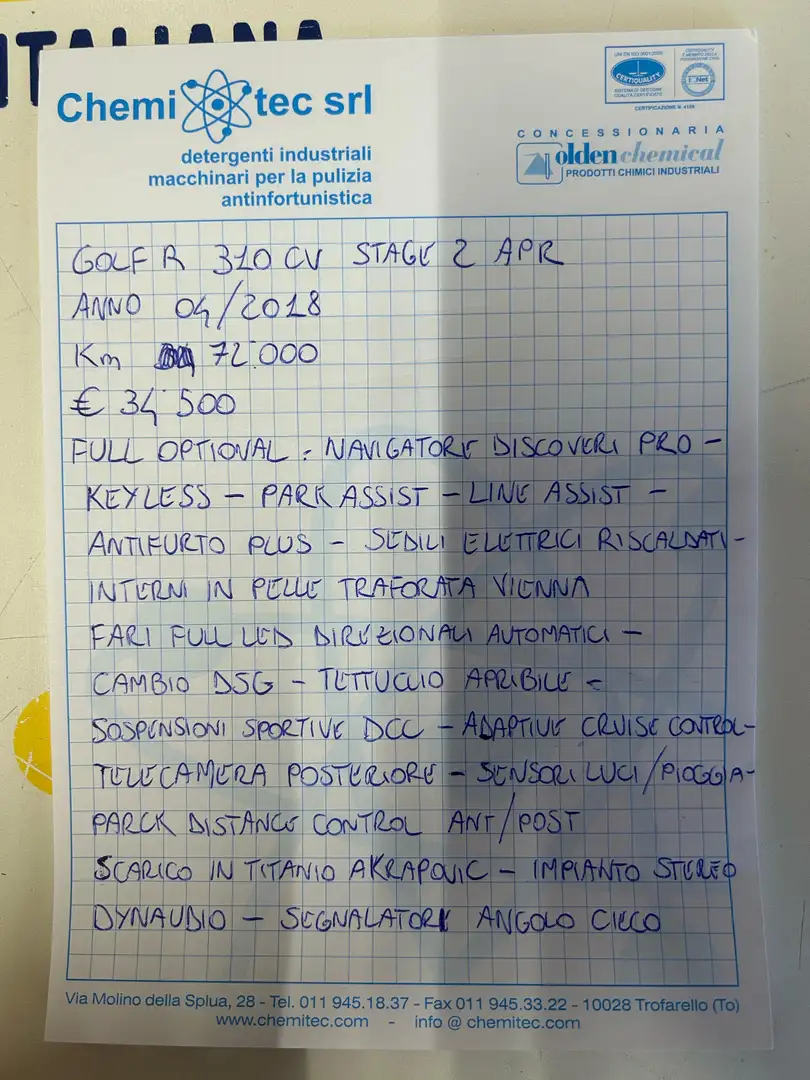 ITALIANA
Chemi tec srl
detergenti industriali
macchinari per la pulizia
antinfortunistica
UNI EN ISO 9001:2000
CERTIQUALITY
SISTEMA DI GESTIONE
QUALITÀ CERTIFICATO
CERTIFICAZIONE N. 4159
CONCESSIONARIA
olden chemical
PRODOTTI CHIMICI INDUSTRIALI
GOLF R 310 CV STAGE 2 APR
ANNO 04/2018
Km 72.000
€ 34.500
FULL OPTIONAL: NAVIGATORE DISCOVERI PRO -
KEYLESS - PARK ASSIST - LINE ASSIST -
ANTIFURTO PLUS - SEDILI ELETTRICI RISCALDATI -
INTERNI IN PELLE TRAFORATA VIENNA
FARI FULL LED DIREZIONALI AUTOMATICI -
CAMBIO DSG - TETTUCCIO APRIBILE -
SOSPENSIONI SPORTIVE DCC - ADAPTIVE CRUISE CONTROL -
TELECAMERA POSTERIORE - SENSORI LUCI/PIOGGIA -
PARCK DISTANCE CONTROL ANT/POST
SCARICO IN TITANIO AKRAPOVIC - IMPIANTO STEREO
DYNAUDIO - SEGNALATORE ANGOLO CIECO
Via Molino della Splua, 28 - Tel. 011 945.18.37 - Fax 011 945.33.22 - 10028 Trofarello (To)
www.chemitec.com - info @ chemitec.com